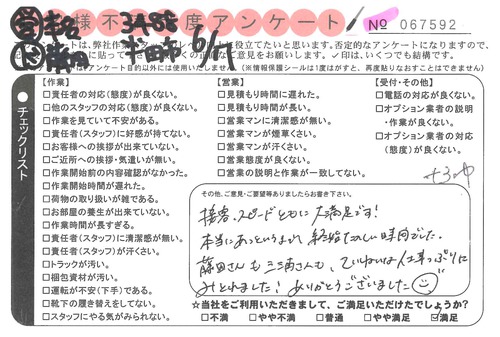 様不満度アンケート
No 067592
トは、弊社作業
役立てたいと思います。否定的なアンケートになりますので、
直なご意見をお願いします。✓印は、いくつでも結構です。
アンケート目的以外には使用いたしません(※情報保護シールは1度はがすと、再度貼りなおすことはできません)
チェックリスト
【作業】
□責任者の対応(態度)が良くない。
□他のスタッフの対応(態度)が良くない。
□作業を見ていて不安がある。
□責任者(スタッフ)に好感が持てない。
□お客様への挨拶が出来ていない。
□ご近所への挨拶・気遣いが無い。
□作業開始前の内容確認がなかった。
□作業開始時間が遅れた。
□荷物の取り扱いが雑である。
□お部屋の養生が出来ていない。
□作業時間が長すぎる。
□責任者(スタッフ)に清潔感が無い。
□責任者(スタッフ)が汗くさい。
□トラックが汚い。
□梱包資材が汚い。
□運転が不安(下手)である。
□靴下の履き替えをしてない。
□スタッフにやる気がみられない。
【営業】
□見積もり時間に遅れた。
□見積もり時間が長い。
□営業マンに清潔感が無い。
□営業マンが煙草くさい。
□営業マンが汗くさい。
□営業態度が良くない。
□営業の説明と作業が一致してない。
【受付・その他】
□電話の対応が良くない。
□オプション業者の説明
・作業が良くない。
□オプション業者の対応
(態度)が良くない。
その他、ご意見・ご要望等ありましたらお書き下さい。
接客、スピードともに大満足です!
本当にあっというまで
時間でした。
藤田さんも三浦さんも、ていねいな仕事っぷりに
みとれました!ありがとうございました
☆当社をご利用いただきまして、ご満足いただけたでしょうか?
□不満 □やや不満 □普通 □やや満足 ☑満足